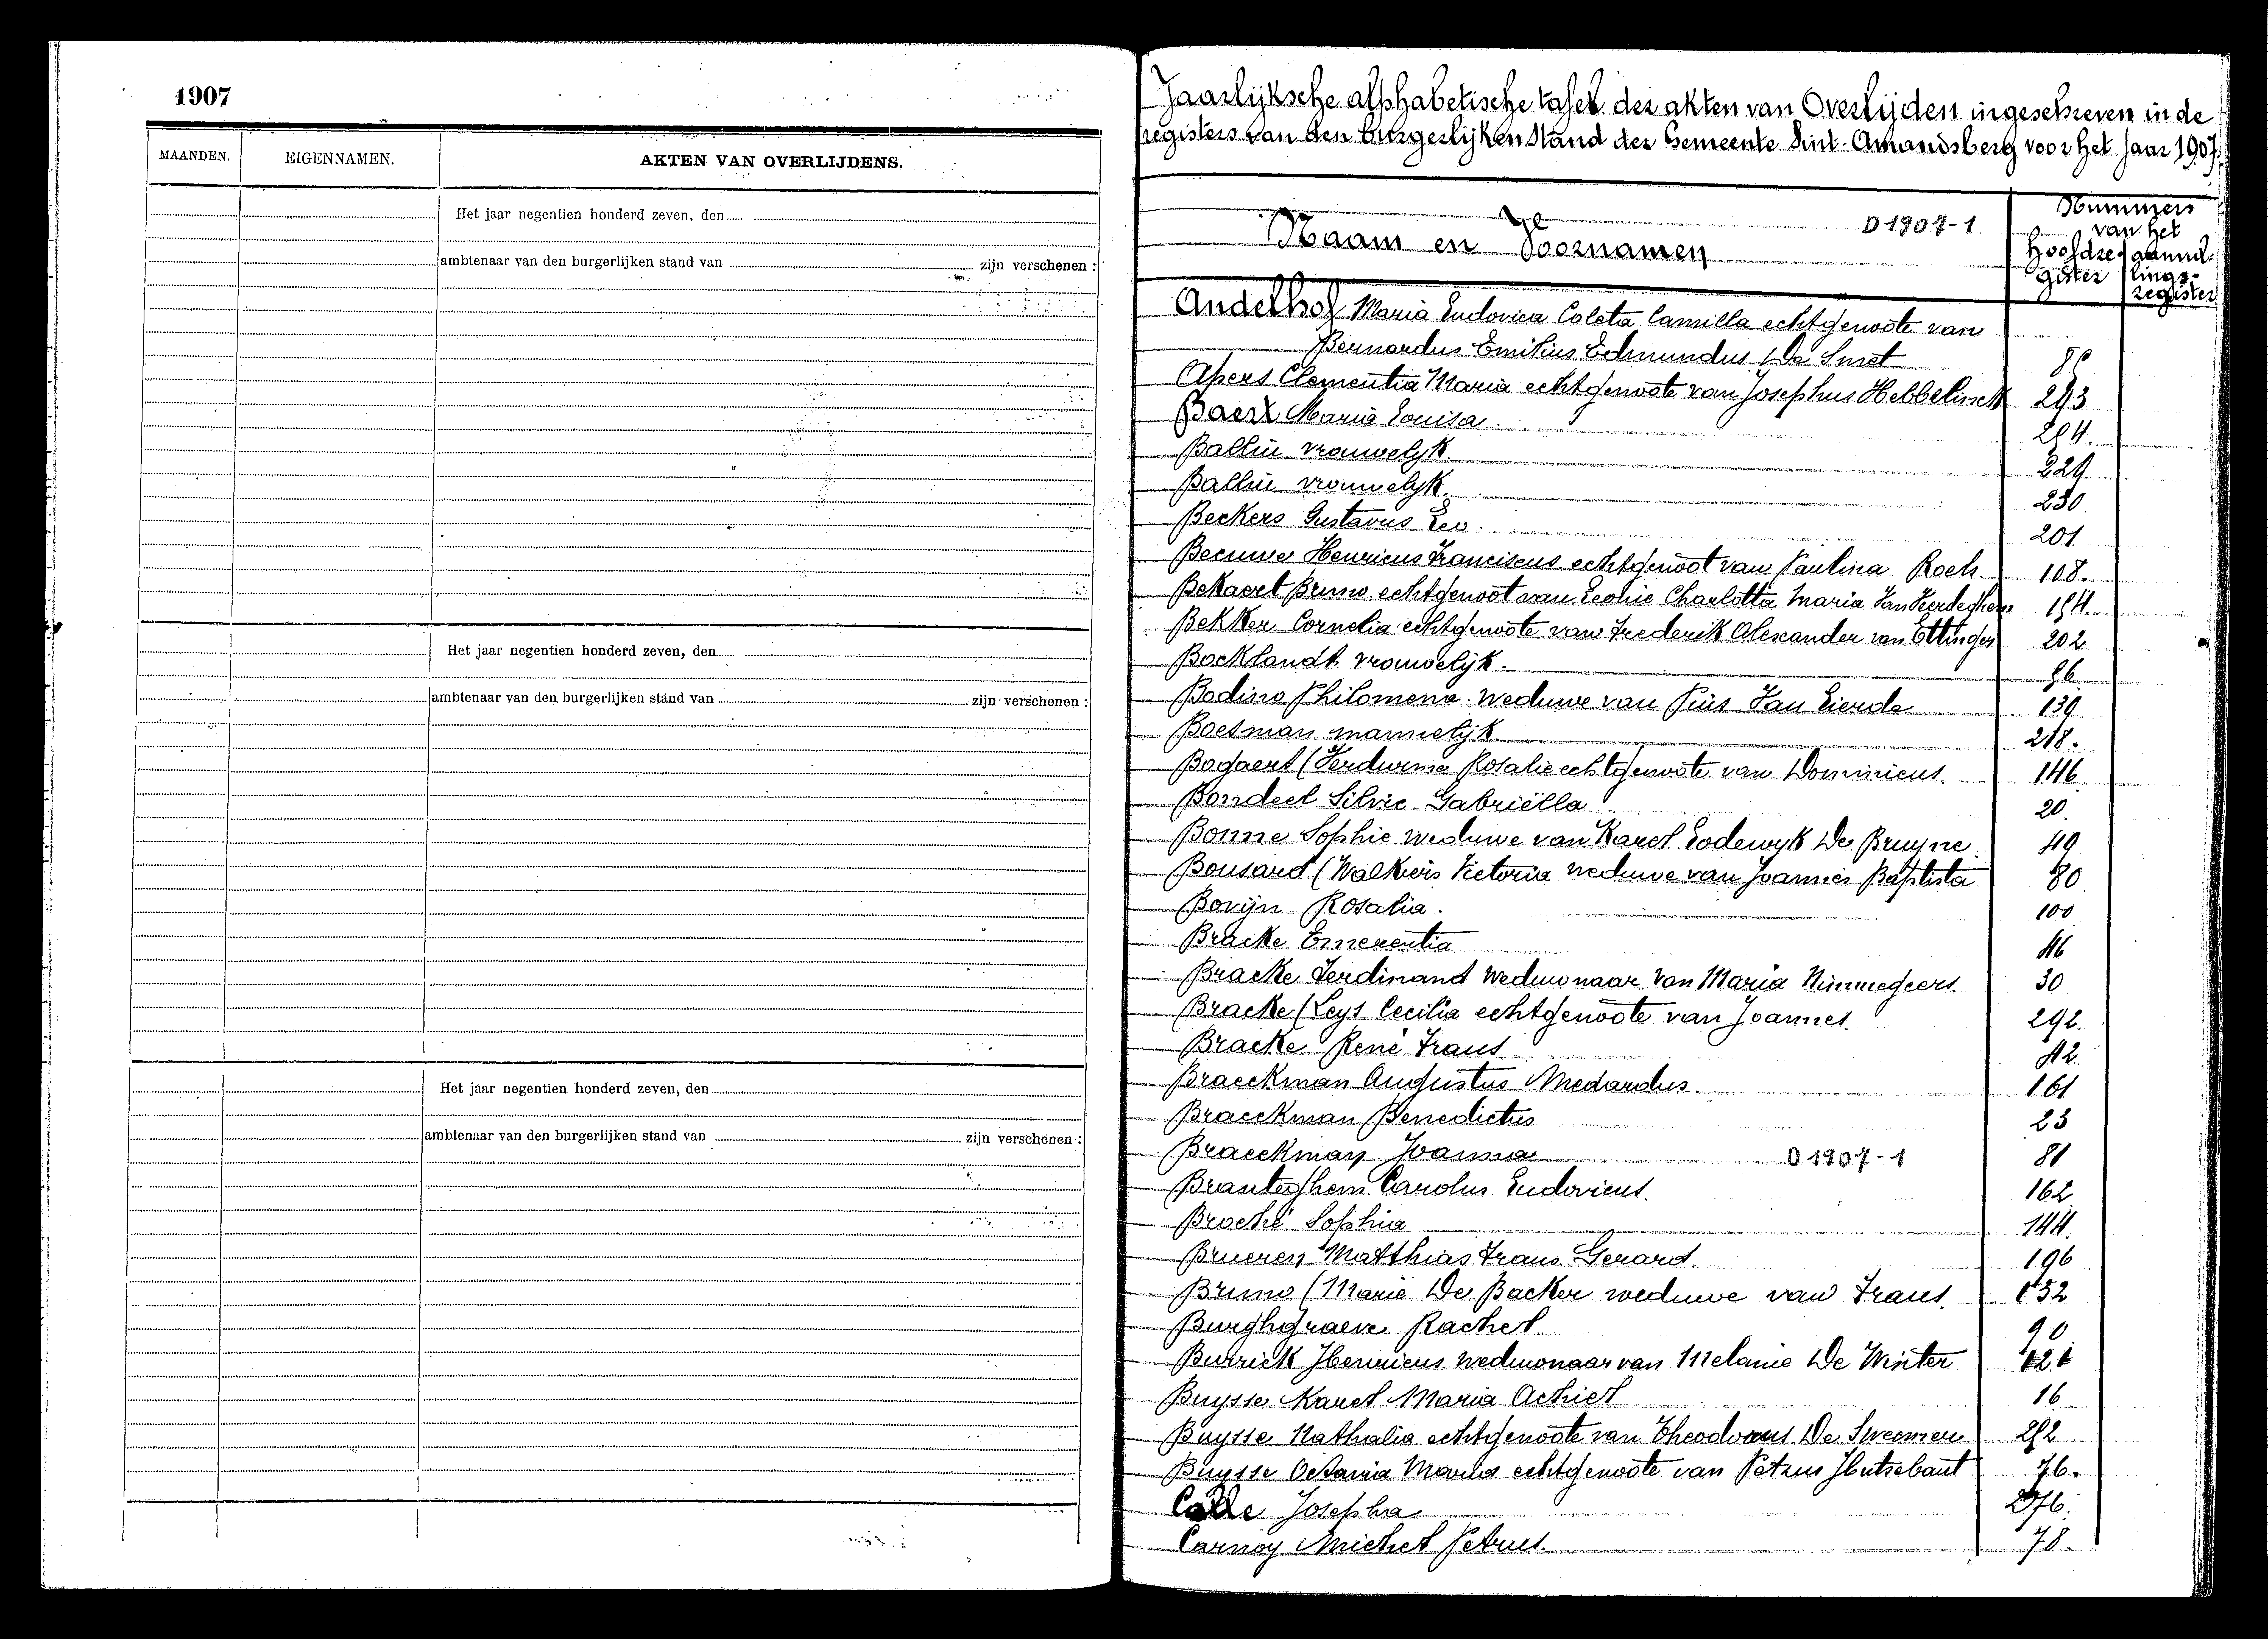 1907
MAANDEN. EIGENNAMEN. AKTEN VAN OVERLIJDENS.
Het jaar negentien honderd zeven, den
ambtenaar van den burgerlijken stand van zijn verschenen :
Het jaar negentien honderd zeven, den
ambtenaar van den burgerlijken stand van zijn verschenen :
Het jaar negentien honderd zeven, den
ambtenaar van den burgerlijken stand van zijn verschenen :
Jaarlijksche alphabetische tafel der akten van Overlijden ingeschreven in de
registers van den burgerlijken stand der Gemeente Sint-Amandsberg voor het jaar 1907.
Naam en Voornamen D 1907-1
Nummers
van het
Hoofdre- aanvul-
gister lings-
register
Andelhof Maria Ludovica Coleta Camilla echtgenoote van
Bernardus Emilius Edmundus De Smet
Apers Clementia Maria echtgenoote van Josephus Hebbelinck 293
Baert Maria Louisa
Ballin vrouwelijk. 229.
Ballin vrouwelijk. 230.
Beckers Gustavus Leo. 201
Beeuwe Henricus Franciscus echtgenoot van Paulina Roels. 108.
Bekaert Bruno echtgenoot van Leonie Charlotta Maria Van Heerdeghem
Bekker Cornelia echtgenoote van Frederik Alexander van Ettinger 202
Bocklandt vrouwelijk.
Bodino Philomena weduwe van Pius Van Lierde 139
Boesman mannelijk. 218.
Bogaert (Verdurme Rosalie echtgenoote van Dominicus. 146
Bondeel Silvie Gabriëlla 20.
Bonne Sophie weduwe van Karel Lodewijk De Bruyne 49
Bousard (Walkiers Victoria weduwe van Joannes Baptista 80
Bovijn Rosalia. 100
Bracke Emerentia 46
Bracke Ferdinand weduwnaar van Maria Nimmegeers. 30
Bracke (Leys Cecilia echtgenoote van Joannes. 292.
Bracke René Frans. 42.
Braeckman Augustus Medardus. 161
Braeckman Benedictus 23
Braeckman Joanna D 1907-1 81
Branteghem Carolus Ludovicus. 162
Broché Sophia 144.
Brueren Matthias Frans Gerard. 196
Bruno (Marie De Backer weduwe van Frans. 152
Burghgraeve Rachel. 90
Burrick Henricus weduwnaar van Melanie De Winter
Buysse Karel Maria Achiel 16
Buysse Nathalia echtgenoote van Theodorus De Sweemer
Buysse Octavia Maria echtgenoote van Petrus Hutsebaut 76.
Calle Josepha 276.
Carnoy Michel Petrus. 78.